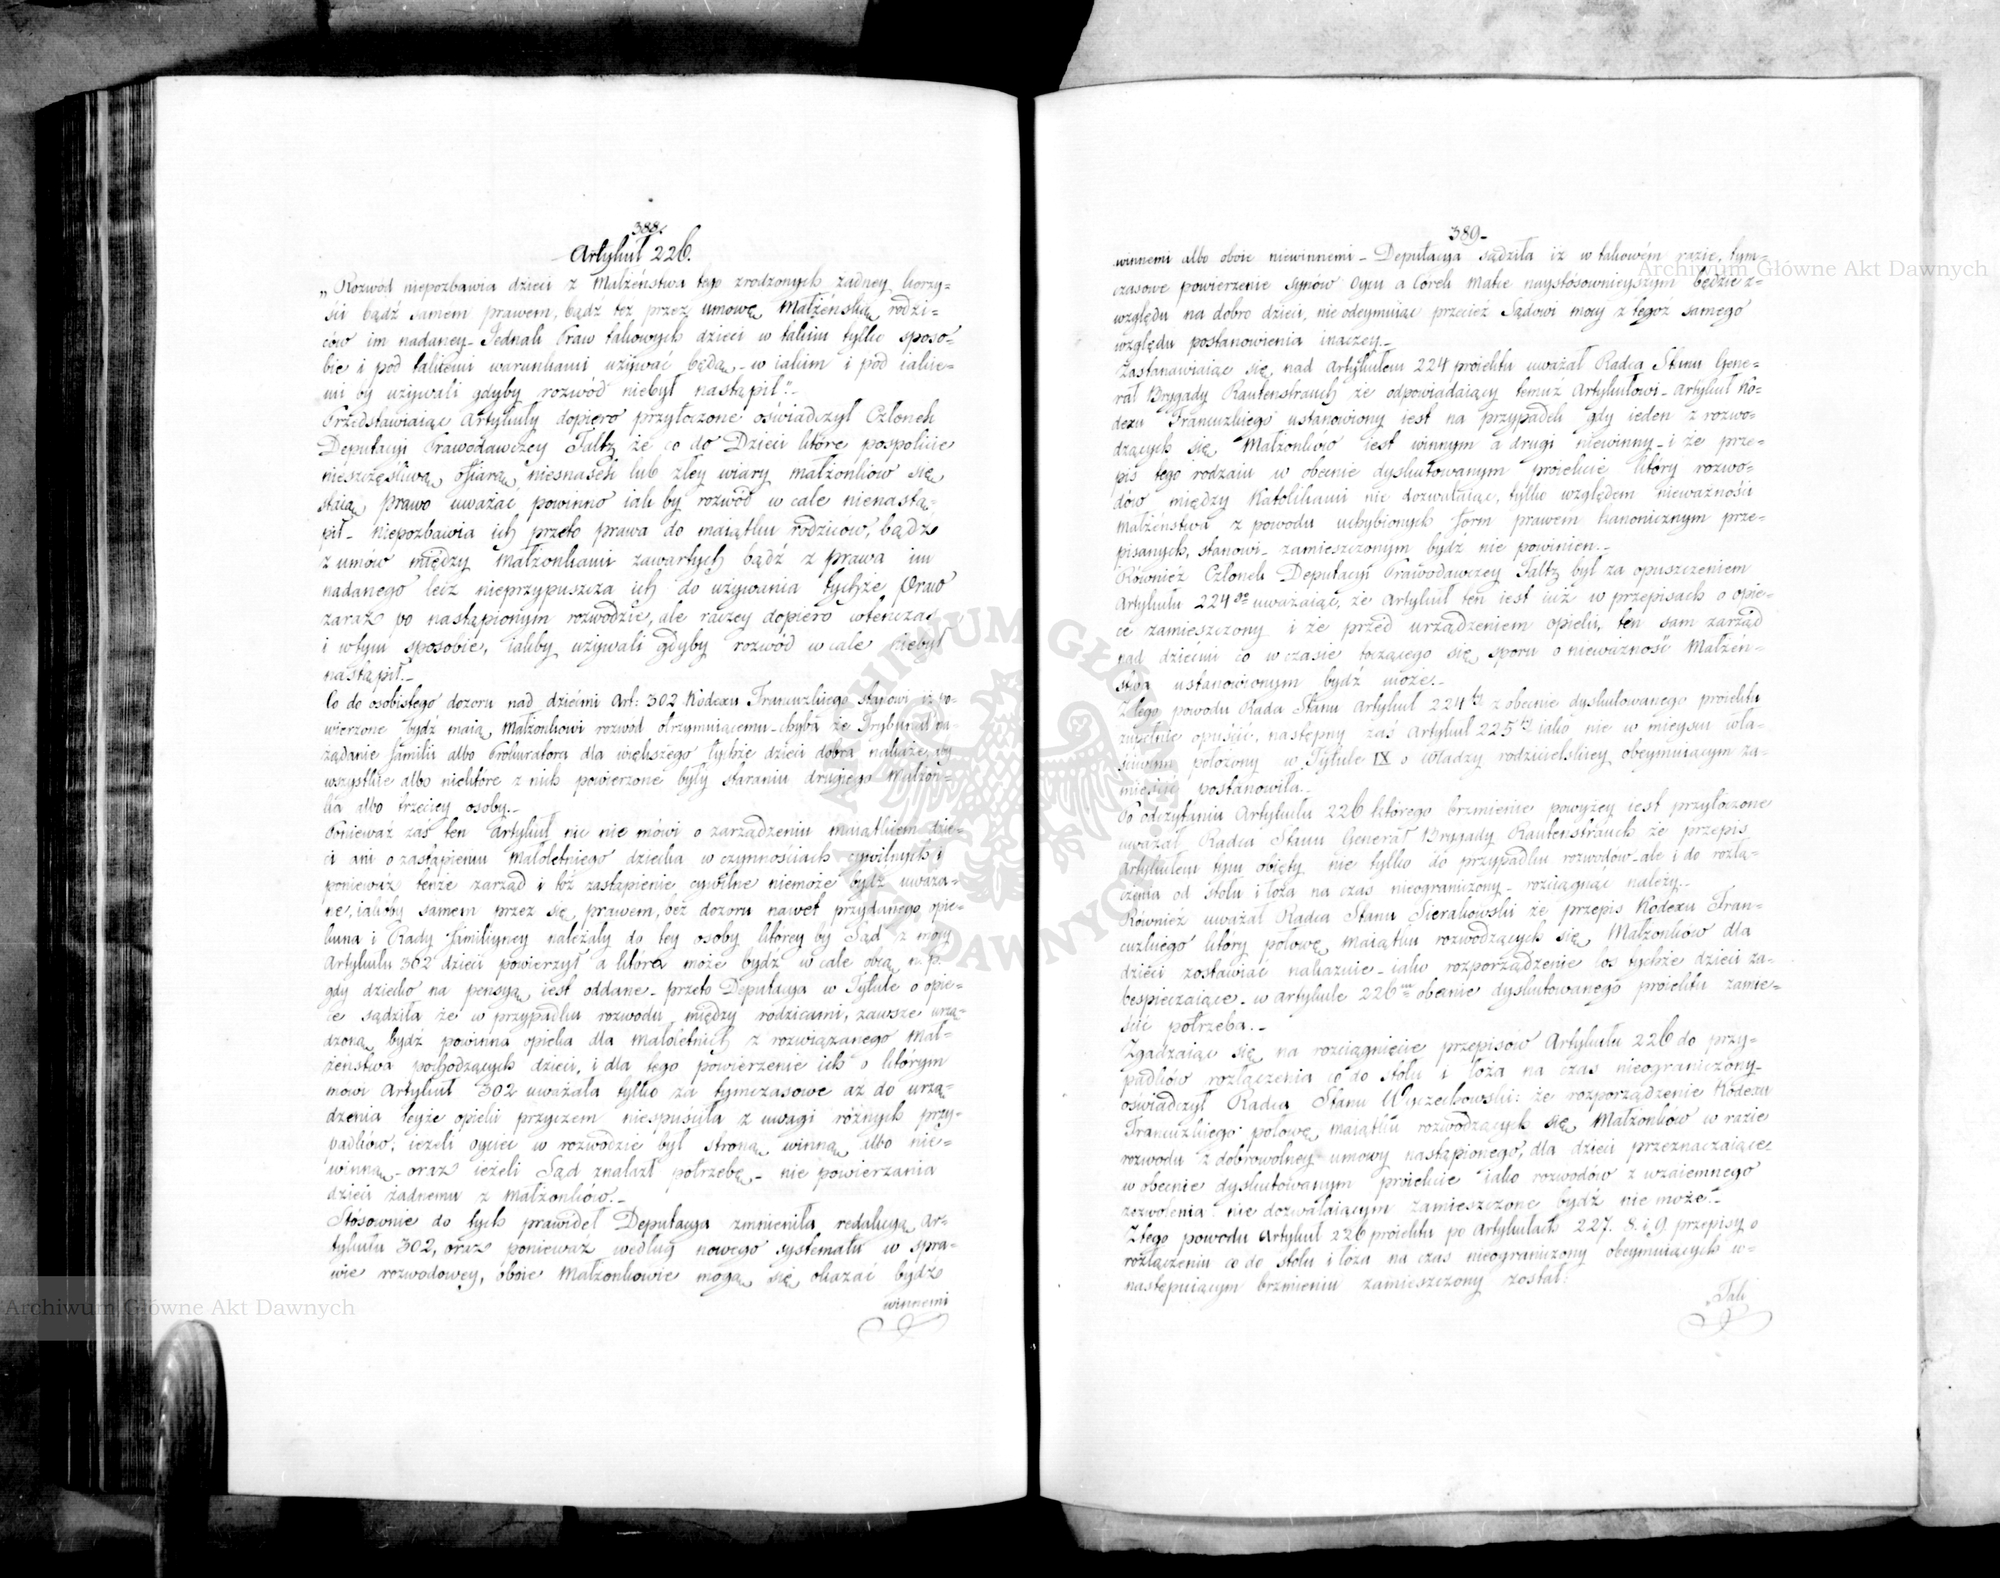 388.
Artykuł 226.
„Rozwód niepozbawia dzieci z Małżeństwa tego zrodzonych żadney korzy-
ści bądź samem prawem, bądź też przez umowę Małżeńską rodzi-
ców im nadaney. Jednak Praw takowych dzieci w takim tylko sposo-
bie i pod takiemi warunkami używać będą - w iakim i pod iakie-
mi by używali gdyby rozwód niebył nastąpił".-
Przedstawiaiąc Artykuły dopiero przytoczone oświadczył Członek
Deputacyi Prawodawczey Faltz że co do Dzieci które pospolicie
nieszczęśliwą ofiarą niesnasek lub złey wiary małżonków się
staią, prawo uważać powinno iak by rozwód wcale nienastą-
pił - niepozbawia ich przeto prawa do maiątku rodziców, bądź
z umów między Małżonkami zawartych bądź z prawa im
nadanego lecz nieprzypuszcza ich do używania tychże Praw
zaraz po nastąpionym rozwodzie, ale raczey dopiero wtenczas
i w tym sposobie, iakby używali gdyby rozwód wcale niebył
nastąpił.-
Co do osobistego dozoru nad dziećmi Art: 302 Kodexu Francuzkiego stanowi iż po-
wierzone bydź maią Małżonkowi rozwód otrzymuiącemu - chyba że Trybunał na
żądanie familii albo Prokuratora dla większego tychże dzieci dobra nakaże, by
wszystkie albo niektóre z nich powierzone były staraniu drugiego Małżon-
ka albo trzeciey osoby.-
Ponieważ zaś ten Artykuł nic nie mówi o zarządzeniu maiątkiem dzie-
ci ani o zastąpieniu Małoletniego dziecka w czynnościach cywilnych i
ponieważ tenże zarząd i toż zastąpienie cywilne niemoże bydź uważa-
ne, iakoby samem przez się prawem, bez dozoru nawet przydanego opie-
kuna i Rady familiyney należały do tey osoby którey by Sąd z mocy
Artykułu 302 dzieci powierzył a która może bydź wcale obcą n. p.
gdy dziecko na pensyą iest oddane - przeto Deputacya w Tytule o opie-
ce sądziła że w przypadku rozwodu między rodzicami, zawsze urzą-
dzoną bydź powinna opieka dla Małoletnich z rozwiązanego Mał-
żeństwa pochodzących dzieci, i dla tego powierzenie ich o którym
mówi Artykuł 302 uważała tylko za tymczasowe aż do urzą-
dzenia teyże opieki przyczem niespuściła z uwagi różnych przy-
padków: ieżeli oyciec w rozwodzie był stroną winną albo nie-
winną - oraz ieżeli Sąd znalazł potrzebę - nie powierzania
dzieci żadnemu z Małżonków.-
Stósownie do tych prawideł Deputacya zmieniła redakcyą Ar-
tykułu 302, oraz ponieważ według nowego systematu w spra-
wie rozwodowey, oboie Małżonkowie mogą się okazać bydź
winnemi
389.
winnemi albo oboie niewinnemi - Deputacya sądziła iż w takowém razie, tym-
czasowe powierzenie synów Oycu a Córek Matce naystósownieyszym będzie z-
względu na dobro dzieci, nie odeymuiąc przecież Sądowi mocy z tegoż samego
względu postanowienia inaczey.-
Zastanawiaiąc się nad Artykułem 224 proiektu uważał Radca Stanu Gene-
rał Brygady Rautenstrauch że odpowiadaiący temuż Artykułowi - Artykuł Ko-
dexu Francuzkiego ustanowiony iest na przypadek gdy ieden z rozwo-
dzących się Małżonków iest winnym a drugi niewinny - i że prze-
pis tego rodzaiu w obecnie dyskutowanym proiekcie który rozwo-
dów między Katolikami nie dozwalaiąc, tylko względem nieważności
Małżeństwa z powodu uchybionych form prawem kanonicznym prze-
pisanych, stanowi - zamieszczonym bydź nie powinien.-
Również Członek Deputacyi Prawodawczey Faltz był za opuszczeniem
Artykułu 224go uważaiąc, że Artykuł ten iest iuż w przepisach o opie-
ce zamieszczony i że przed urządzeniem opieki, ten sam zarząd
nad dziećmi co w czasie toczącego się sporu o nieważność Małżeń-
stwa ustanowionym bydź może.-
Z tego powodu Rada Stanu Artykuł 224ty z obecnie dyskutowanego proiektu
zupełnie opuścić, następny zaś Artykuł 225ty iako nie w mieyscu wła-
ściwem położony w Tytule IX o władzy rodzicielskiey obeymuiącym za-
mieścić postanowiła.-
Po odczytaniu Artykułu 226 którego brzmienie powyżey iest przytoczone
uważał Radca Stanu Generał Brygady Rautenstrauch że przepis
Artykułem tym obięty nie tylko do przypadku rozwodów - ale i do rozłą-
czenia od stołu i łoża na czas nieograniczony - rozciągnąć należy.-
Również uważał Radca Stanu Sierakowski że przepis Kodexu Fran-
cuzkiego który połowę maiątku rozwodzących się Małżonków dla
dzieci zostawiać nakazuie - iako rozporządzenie los tychże dzieci za-
bespieczaiące - w Artykule 226m obecnie dyskutowanego proiektu zamie-
ścić potrzeba.-
Zgadzaiąc się na rozciągnięcie przepisów Artykułu 226 do przy-
padków rozłączenia co do stołu i łoża na czas nieograniczony
oświadczył Radca Stanu Wyczechowski: że rozporządzenie Kodexu
Francuzkiego połowę maiątku rozwodzących się Małżonków w razie
rozwodu z dobrowolney umowy nastąpionego, dla dzieci przeznaczaiące
w obecnie dyskutowanym proiekcie iako rozwodów z wzaiemnego
zezwolenia nie dozwalaiącym zamieszczone bydź nie może.-
Z tego powodu Artykuł 226 proiektu po Artykułach 227. 8. i 9 przepisy o
rozłączeniu co do stołu i łoża na czas nieograniczony obeymuiących w-
następuiącym brzmieniu zamieszczony został:
„Tak
Archiwum Główne Akt Dawnych
Archiwum Główne Akt Dawnych
ARCHIWUM GŁÓWNE AKT DAWNYCH